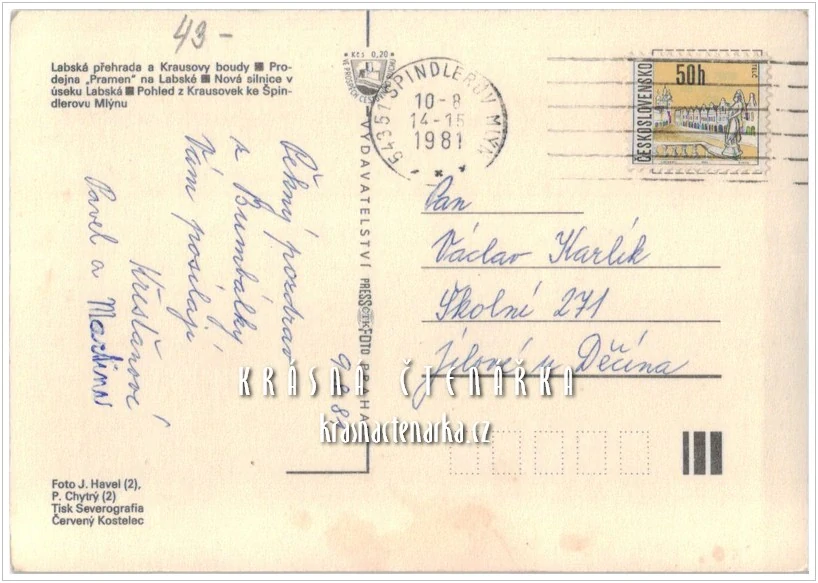 43-
Labská přehrada a Krausovy boudy ■ Pro-
dejna „Pramen" na Labské ■ Nová silnice v
úseku Labská ■ Pohled z Krausovek ke Špin-
dlerovu Mlýnu
Kčs 0,20
54351 ŠPINDLERŮV MLÝN
10-8
14-15
1981
ČESKOSLOVENSKO
50h
TELČ
Pěkný pozdrav
z Bumbálky
Vám posílají
Křešťanovi
Pavel a Martina
VYDAVATELSTVÍ PRESSFOTO PRAHA
Pan
Václav Karlík
Školní 271
Jílové u Děčína
KRÁSNÁ ČTENÁŘKA
krasnactenarka.cz
Foto J. Havel (2),
P. Chytrý (2)
Tisk Severografia
Červený Kostelec